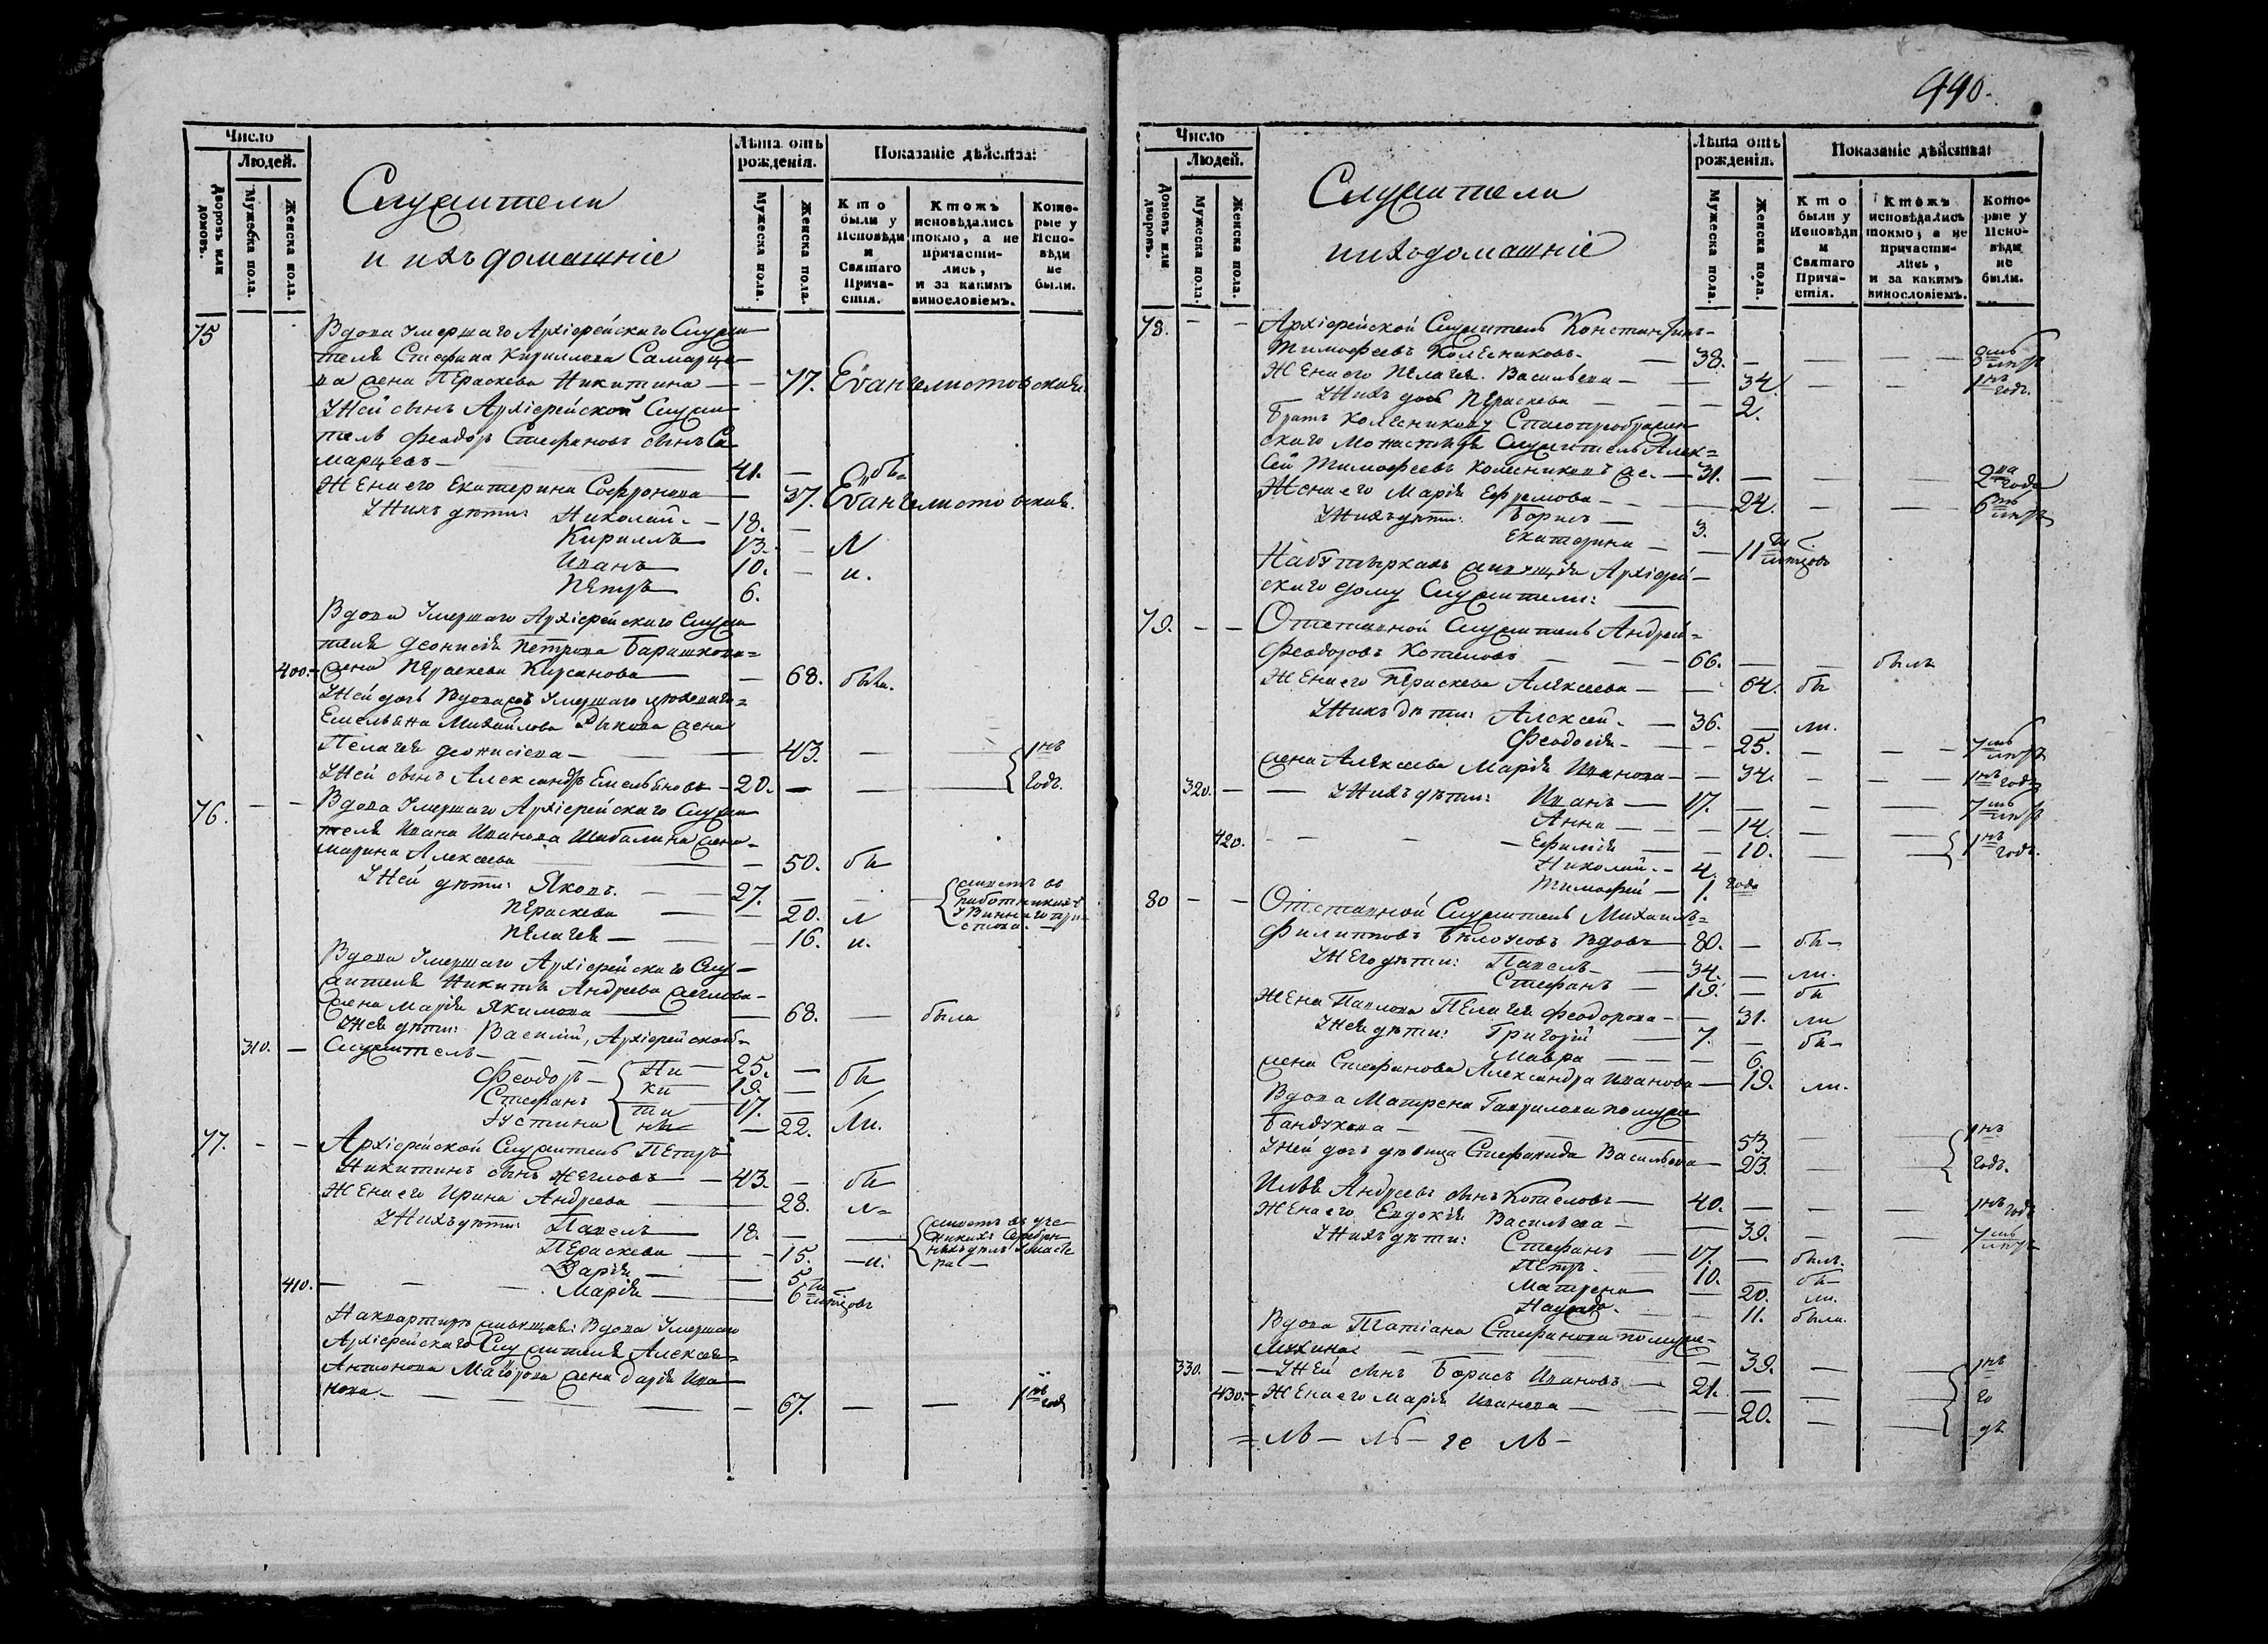 Число
Людей.
Дворовъ или домовъ.
Мужеска пола.
Женска пола.
Служители
и ихъ домашніе
Лѣта отъ рожденія.
Мужеска пола.
Женска пола.
Показаніе дѣйства:
Кто были у Исповѣди и Святаго Причастія.
Ктожъ исповѣдались токмо, а не причастились, и за какимъ винословіемъ.
Которые у Исповѣди не были.
75 Вдова Умершаго Архіерейскаго Служи
теля Стефана Кириллова Самарце
ва жена Параскева Никитина — — 77.
У Ней сынъ Архіерейской Служи
тель Феодоръ Стефановъ сынъ Са
марцевъ — 41. —
Жена его Екатерина Софронова — 37.
У Нихъ дѣти: Николай. — 18. —
Кириллъ 13. —
Иванъ 10. — и.
Петръ 6.
Вдова Умершаго Архіерейскаго Служи
теля Деонисія Петрова Барашкова=
400. — жена Параскева Кирсанова — 68. была.
У Ней дочь Вдова
Емельяна Михайлова жена
Пелагея Деонисіева — 43. — 1нъ
У Ней сынъ Александръ Емельяновъ — 20. — — годъ.
76. — — Вдова Умершаго Архіерейскаго Служи
теля Ивана Иванова Шабалина жена
Марина Алексеева — 50. бы
У Ней дѣти: Яковъ. — 27. —
Параскева — 20. л
Пелагея — — 16. и.
Вдова Умершаго Архіерейскаго Слу—
жителя Никиты Андреева Жеглова—
жена Марія Якимова — 68. — была
У Нея дѣти: Василій, Архіерейской=
310. — Служитель — 25. —
Феодоръ — Ни 19. — бы
Стефанъ ки ти 17. —
Устинья ны — 22. ли.
77. — — Архіерейской Служитель Петръ
Никитинъ сынъ Жегловъ — 43. — бы
Жена его Ирина Андреева — 28. л=
У Нихъ дѣти: Павелъ 18. —
Параскева — 15. — и.
Дарія — 5.
410. — — Марія — 6ти мѣсяцовъ
На квартирѣ живущая: Вдова Умершаго
Архіерейскаго Служителя Алексея
Антонова жена Дарія Ива
нова — — 67. — — 1нъ годъ
440.
Число
Людей.
Домовъ или дворовъ.
Мужеска пола.
Женска пола.
Служители
и ихъ домашніе
Лѣта отъ рожденія.
Мужеска пола.
Женска пола.
Показаніе дѣйства:
Кто были у Исповѣди и Святаго Причастія.
Ктожъ исповѣдались токмо, а не причастились, и за какимъ винословіемъ.
Которые у Исповѣди не были.
78. — — Архіерейской Служитель Константинъ—
Тимофеевъ Колесниковъ — 38. —
Жена его Пелагея Васильева — 34. — — 1нъ годъ.
У Нихъ дочь Параскева — 2.
Братъ Колесникову Спасопреображен
скаго Монастыря Служитель Алек=
сей Тимофеевъ Колесниковъ же. — 31. — — 2ва года
Жена его Марія Ефремова — 24. — — 6ть
У Нихъ дѣти: Борисъ — 3.
Екатерина — — 11ти мѣсяцовъ
живущія Архіерей—
скаго дому Служители:
79. — — Отставной Служитель Андрей=
Феодоровъ Котеловъ — 66. — — былъ
Жена его Параскева Алексеева — 64. бы
У Нихъ дѣти: Алексей. — 36. — ли.
Феодосія — 25. — — 7мь
жена Алексеева Марія Иванова — 34. — — 1нъ годъ
320. — — У Нихъ дѣти: Иванъ — 17. — — 7мь
Анна — 14. — —
420. — — Ефимія — 10. — — 1нъ годъ.
Николай — 4.
Тимофей — 1. года
80 — — Отставной Служитель Михаилъ=
Филипповъ Белоусовъ вдовъ — 80. — бы—
У Него дѣти: Павелъ — 34. — ли.
Стефанъ — 19. — бы
Жена Павлова Пелагея Феодорова — 31. ли
У Нея дѣти: Григорій — 7. — бы—
Мавра — 6.
жена Стефанова Александра Иванова — 19. ли.
Вдова Матрена Гаврилова по мужу
— 53. — — 1нъ
У Ней дочь дѣвица Стефанида Васильева — 23. — — годъ.
Илья Андреевъ сынъ Котеловъ — 40. — — 1нъ годъ
Жена его Евдокія Васильева — 39. — — 7мь
У Нихъ дѣти: Стефанъ — 17. — былъ.
Петръ. — 10. — бы—
Матрена — 20. ли.
11. была.
Вдова Татіана Стефанова по мужу—
— 39. — — 1нъ
330. — — У Ней сынъ Борисъ Ивановъ — 21. — — го
430. — Жена его Марія Иванова — 20. — — дъ